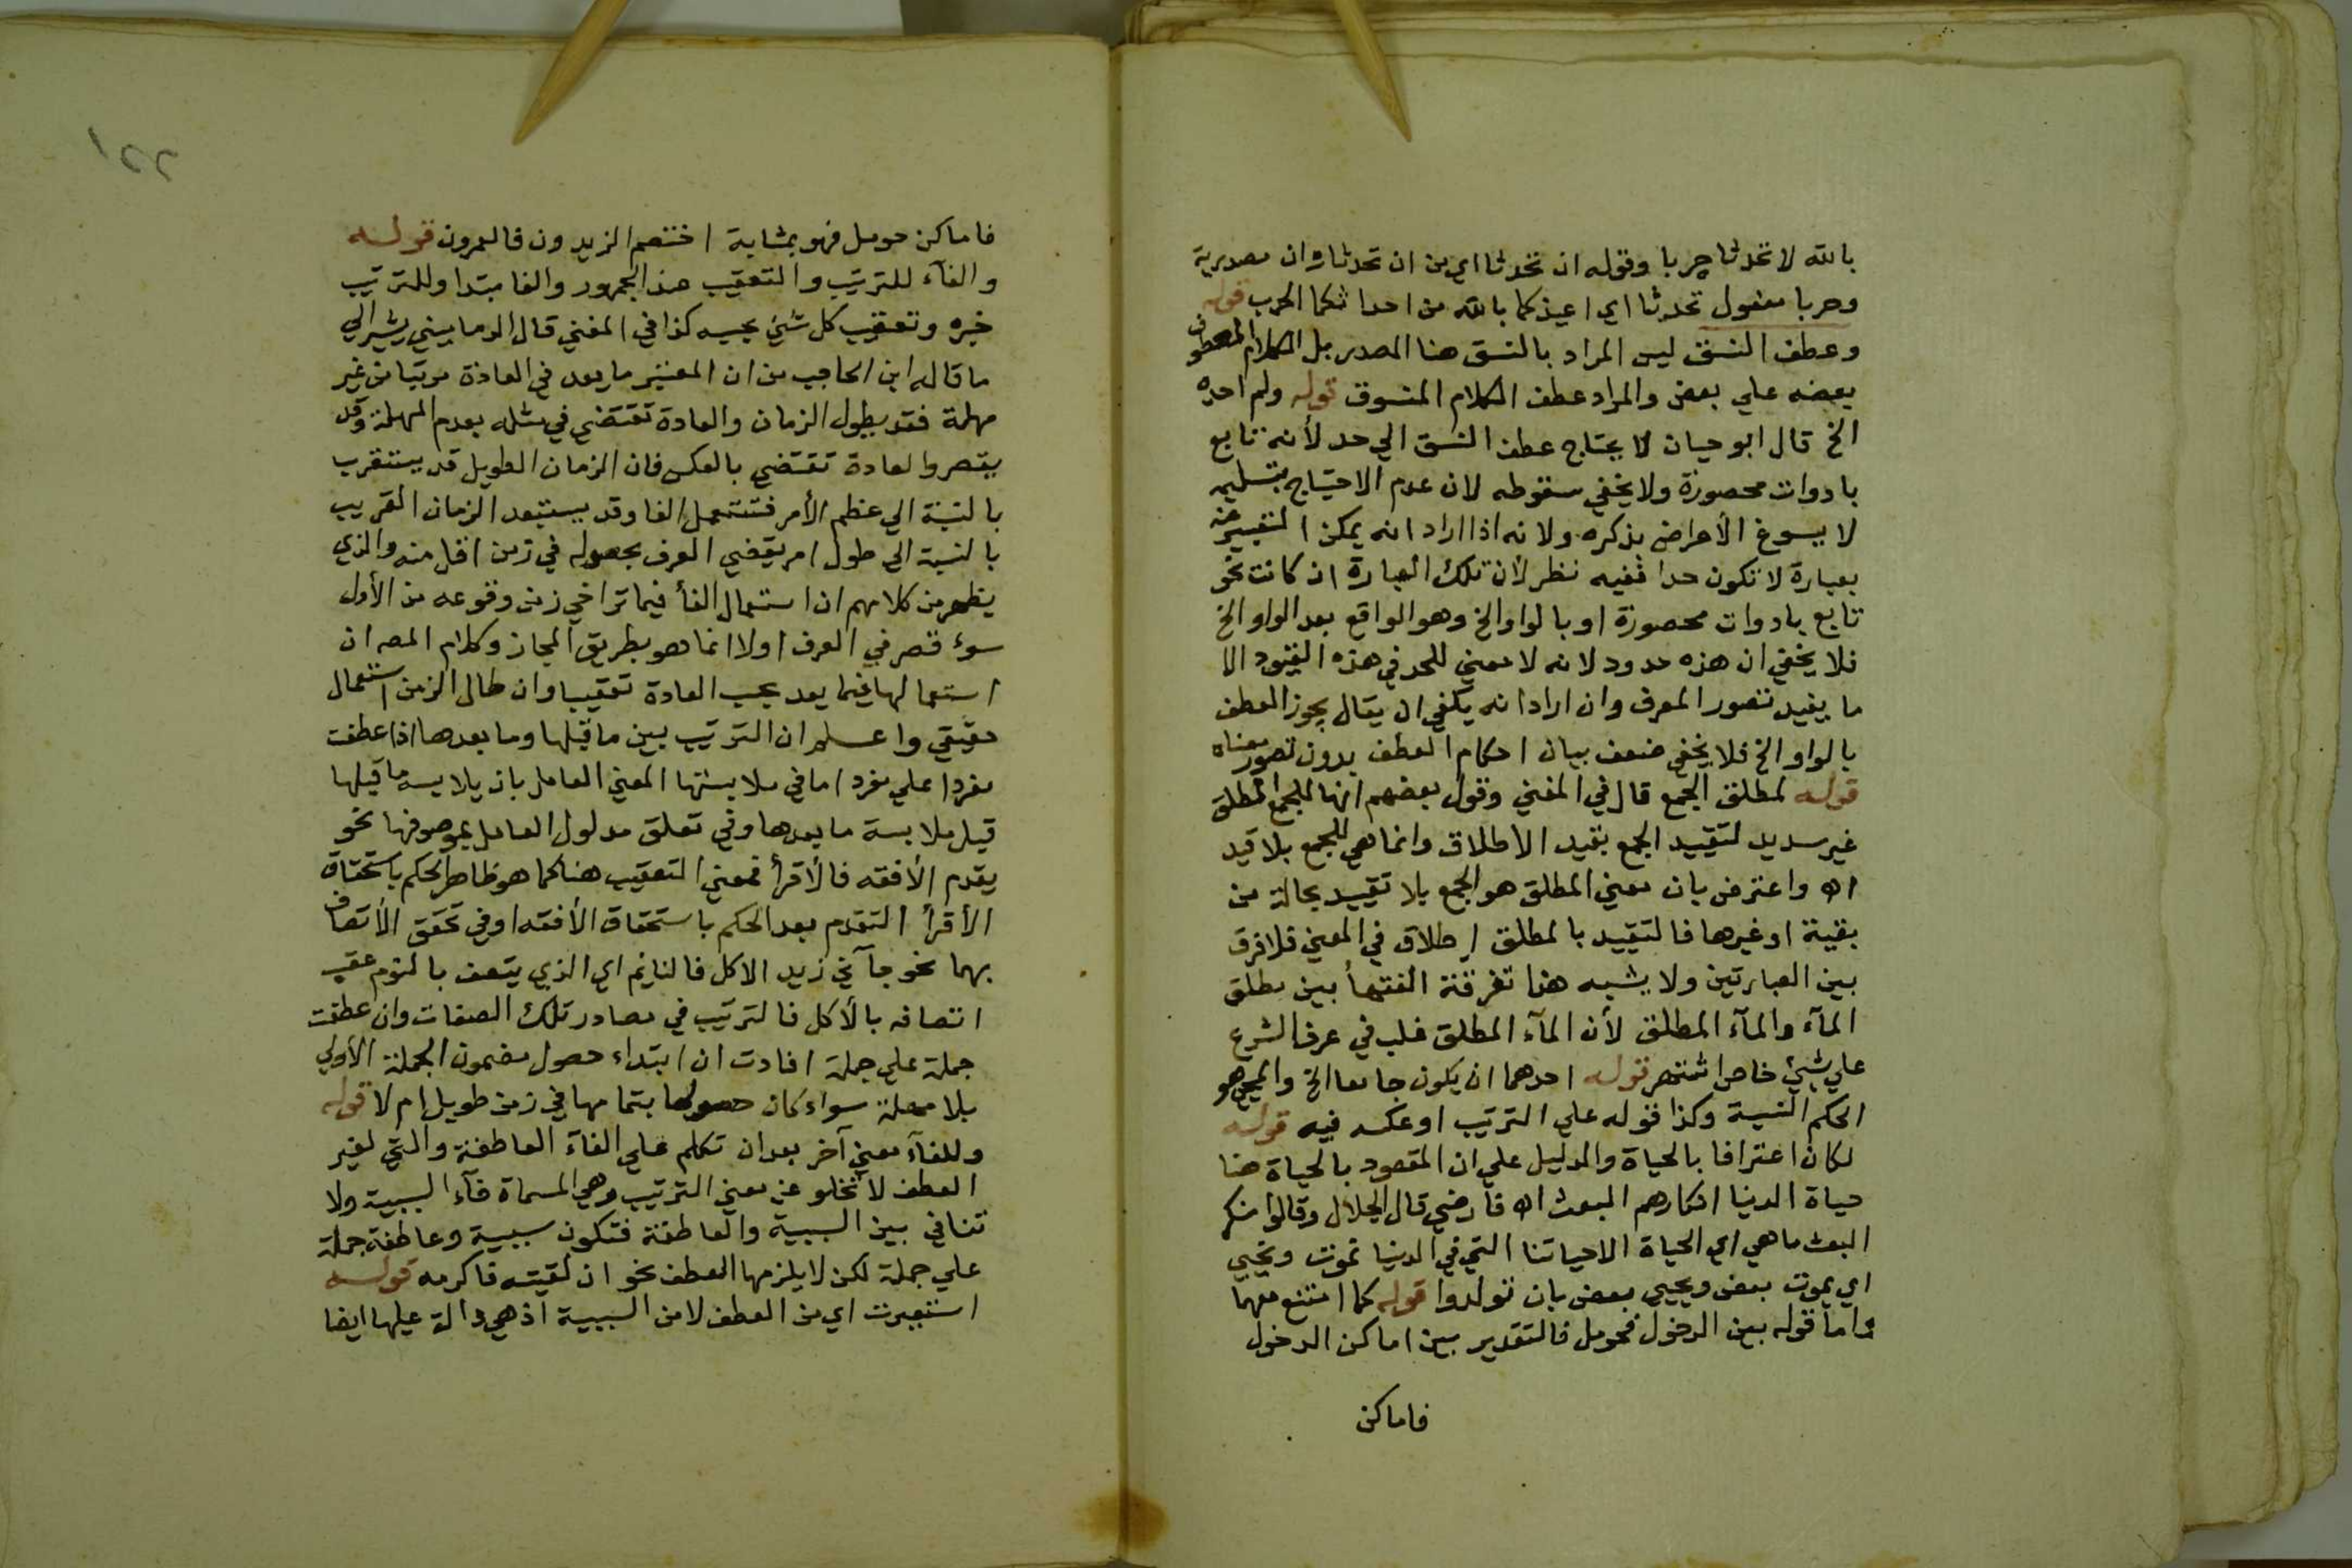 بالله لا تحدثا حربا وقوله ان تحدثا اي من ان تحدثا وان مصدرية
وحربا مفعول تحدثا اي اعيذكما بالله من احداثكما الحرب قوله
وعطف النسق ليس المراد بالنسق هنا المصدر بل الكلام المعطوف
بعضه علي بعض والمراد عطف الكلام المنسوق قوله ولم احده
الخ قال ابو حيان لا يحتاج عطف النسق الي حد لأنه تابع
بادوات محصورة ولا يخفي سقوطه لان عدم الاحتياج بتسليمه
لا يسوغ الأعراض بذكره ولانه اذا اراد انه يمكن التعبير عنه
بعبارة لا تكون حدا ففيه نظر لأن تلك العبارة ان كانت نحو
تابع بادوات محصورة او بالواو الخ وهو الواقع بعد الواو الخ
فلا يخفي ان هذه حدود لانه لا معني للحد في هذه القيود الا
ما يفيد تصور المعرف وان اراد انه يكفي ان يقال يجوز العطف
بالواو الخ فلا يخفي ضعف بيان احكام العطف بدون تصور معناه
قوله لمطلق الجمع قال في المغني وقول بعضهم انها للجمع المطلق
غير سديد لتقييد الجمع بقيد الاطلاق وانما هي للجمع بلا قيد
اه واعترض بان معني المطلق هو الجمع بلا تقييد بحالة من
بقية او غيرها فالتقييد بالمطلق اطلاق في المعني فلا فرق
بين العبارتين ولا يشبه هذا تفرقة الفقهأ بين مطلق
المآء والمآء المطلق لأن المآء المطلق غلب في عرف الشرع
علي شيئ خاص اشتهر قوله احدهما ان يكون جامعا الخ والمجي هو
الحكم النسبة وكذا قوله علي الترتيب او عكسه فيه قوله
لكان اعترافا بالحياة والدليل علي ان المقصود بالحياة هنا
حياة الدنيا انكارهم البعث اه قارضي قال الجلال وقالوا منكروا
البعث ما هي اي الحياة الا حياتنا التي في الدنيا نموت ونحيي
اي يموت بعض ويحيي بعض بان تولدوا قوله كما امتنع معها
واما قوله بين الدخول فحومل فالتقدير بين اماكن الدخول
فاماكن
١٢٢
فاماكن حومل فهو بمثابة اختصم الزيدون فالعمرون قوله
والفآء للترتيب والتعقيب هذا الجمهور والفا مبتدا وللترتيب
خبره وتعقيب كل شيئ بحسبه كذا في المغني قال الدماميني يشير الي
ما قاله ابن الحاجب من ان المعتبر ما يعد في العادة مرتبا من غير
مهلة فقد يطول الزمان والعادة تقتضي في مثله بعدم المهلة وقد
يقصر والعادة تقتضي بالعكس فان الزمان الطويل قد يستقرب
بالنسبة الي عظم الأمر فتستعمل الفا وقد يستبعد الزمان القريب
بالنسبة الي طول امر يقضي العرف بحصوله في زمن اقل منه والذي
يظهر من كلامهم ان استعمال الفأ فيما تراخي زمن وقوعه من الأول
سوء قصر في العرف اولا انما هو بطريق المجاز وكلام المصـ ان
استعمالها فيما يعد بحسب العادة تعقيبا وان طال الزمن استعمال
حقيقي واعلم ان الترتيب بين ما قبلها وما بعدها اذا عطفت
مفردا علي مفرد اما في ملابستها المعني العامل بان يلابسه ما قبلها
قبل ملابسة ما بعدها وفي تعلق مدلول العامل بموصوفها نحو
يقدم الأفقه فالأقرأ فمعني التعقيب هنا كما هو ظاهر الحكم باستحقاق
الأقرأ التقدم بعد الحكم باستحقاق الأفقه او في تحقق الأتصاف
بهما نحو جآني زيد الاكل فالنايم اي الذي يتصف بالنوم عقب
اتصافه بالأكل فالترتيب في مصادر تلك الصفات وان عطفت
جملة علي جملة افادت ان ابتداء حصول مضمون الجملة الأولي
بلا مهلة سواء كان حصولها بتمامها في زمن طويل ام لا قوله
وللفآء معني آخر بعد ان تكلم علي الفآء العاطفة والتي لغير
العطف لا تخلو عن معني الترتيب وهي المسماة فآء السببية ولا
تنافي بين السببية والعاطفة فتكون سببية وعاطفة جملة
علي جملة لكن لا يلزمها العطف نحو ان لقيته فاكرمه قوله
استعيرت اي من العطف لا من السببية اذ هي دالة عليها ايضا